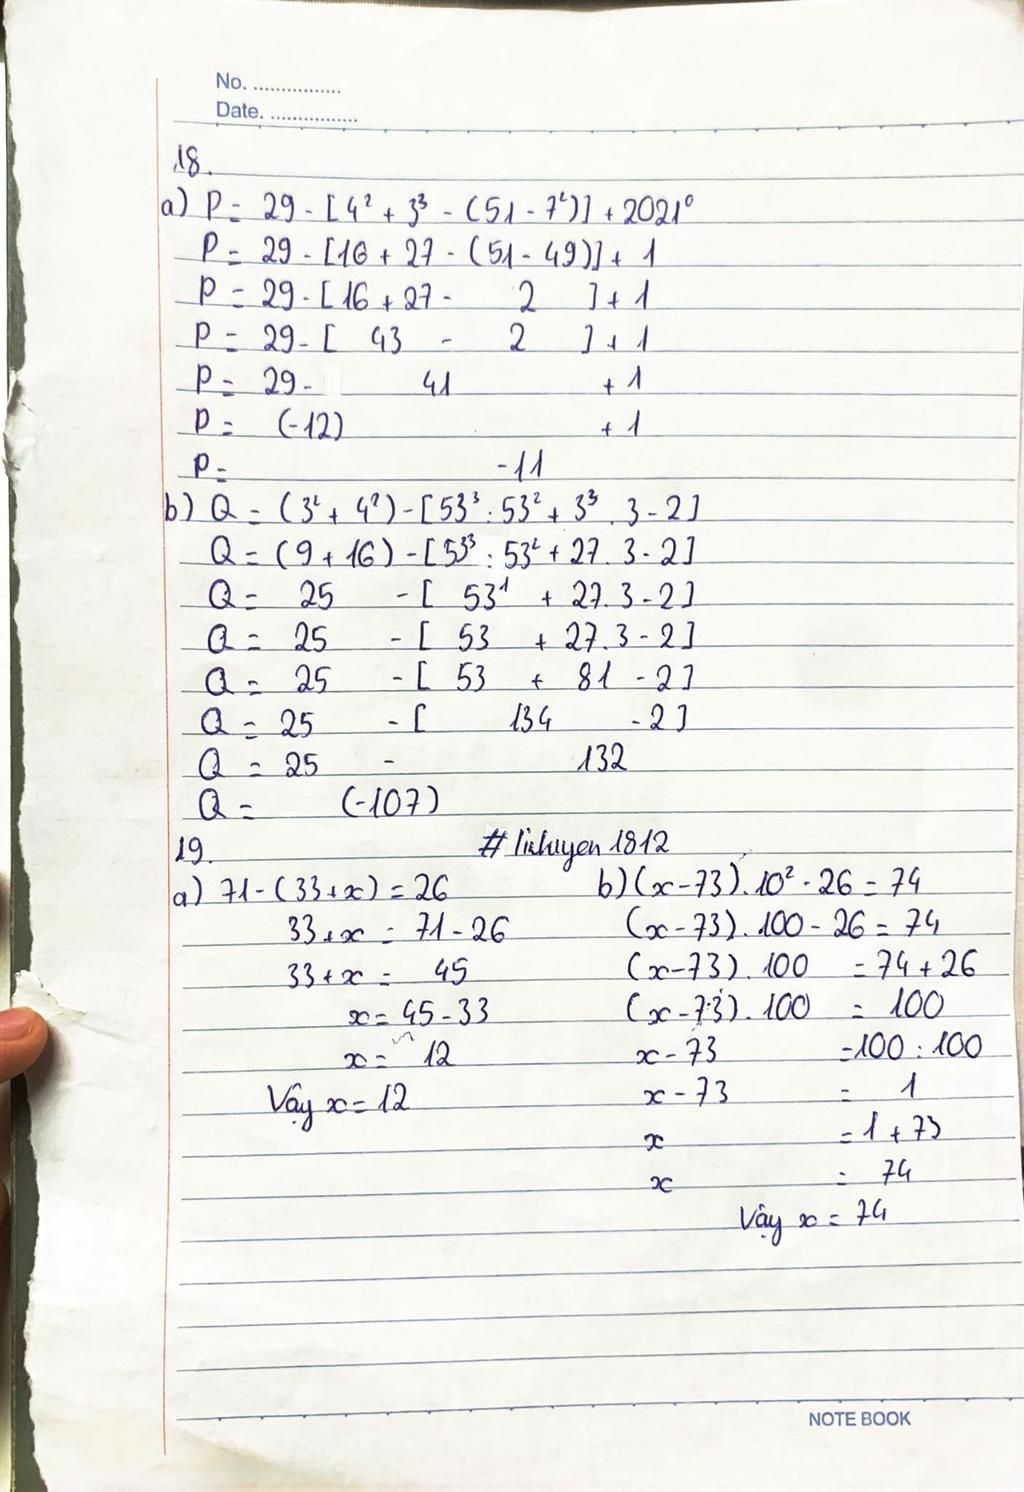 No. ................
Date. ................
18.
a) P = 29 - [4² + 3³ - (51 - 7²)] + 2021⁰
P = 29 - [16 + 27 - (51 - 49)] + 1
P = 29 - [16 + 27 - 2 ] + 1
P = 29 - [ 43 - 2 ] + 1
P = 29 - 41 + 1
P = (-12) + 1
P = -11
b) Q = (3² + 4²) - [53³ : 53² + 3³ . 3 - 2]
Q = (9 + 16) - [53³ : 53² + 27 . 3 - 2]
Q = 25 - [ 53¹ + 27 . 3 - 2]
Q = 25 - [ 53 + 27 . 3 - 2]
Q = 25 - [ 53 + 81 - 2]
Q = 25 - [ 134 - 2]
Q = 25 - 132
Q = (-107)
19. # 1812
a) 71 - (33 + x) = 26
33 + x = 71 - 26
33 + x = 45
x = 45 - 33
x = 12
Vậy x = 12
b) (x - 73) . 10² - 26 = 74
(x - 73) . 100 - 26 = 74
(x - 73) . 100 = 74 + 26
(x - 73) . 100 = 100
x - 73 = 100 : 100
x - 73 = 1
x = 1 + 73
x = 74
Vậy x = 74
NOTE BOOK